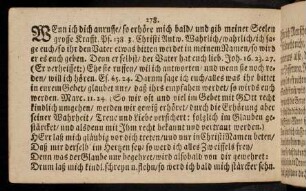 278.
WEnn ich dich anruffe/ so erhöre mich bald/ und gib meiner Seelen
grosse Krafft. Ps. 138. 3. Christi Antw. Warlich/ warlich/ ich sa-
ge euch/ so ihr den Vater etwas bitten werdet in meinem Namen/ so wir-
er es euch geben. Denn er selbst/ der Vater hat euch lieb. Joh. 16. 23. 27.
(Er verheisset:) Ehe sie ruffen/ wil ich antworten/ und wenn sie noch re-
den/ wil ich hören. Es. 65. 24. Darum sage ich euch/ alles was ihr bittet
in eurem Gebet/ glaubet nur/ daß ihrs empfahen werdet/ so wirds euch
werden. Marc. 11. 24. So wir oft und viel im Gebet mit GOtt recht
kindlich umgehen/ werden wir gewiß erhöret/ durch die Erfahrung aber
seiner Wahrheit/ Treue und Liebe versichert; folglich im Glauben ge-
stärcket/ und also mit Ihm recht bekannt und vertraut.
HErr laß mich gläubig vor dich treten/ und nur in Christi Namen beten/
Daß mir derselb im Hertzen sey/ so werd ich alles Zweiffels frey/
Denn was der Glaube nur begehret/ wird alsobald von dir gewehret
Drum laß mich kindl. schreyn u. flehn/ so werd ich bald mich stärcker sehn.